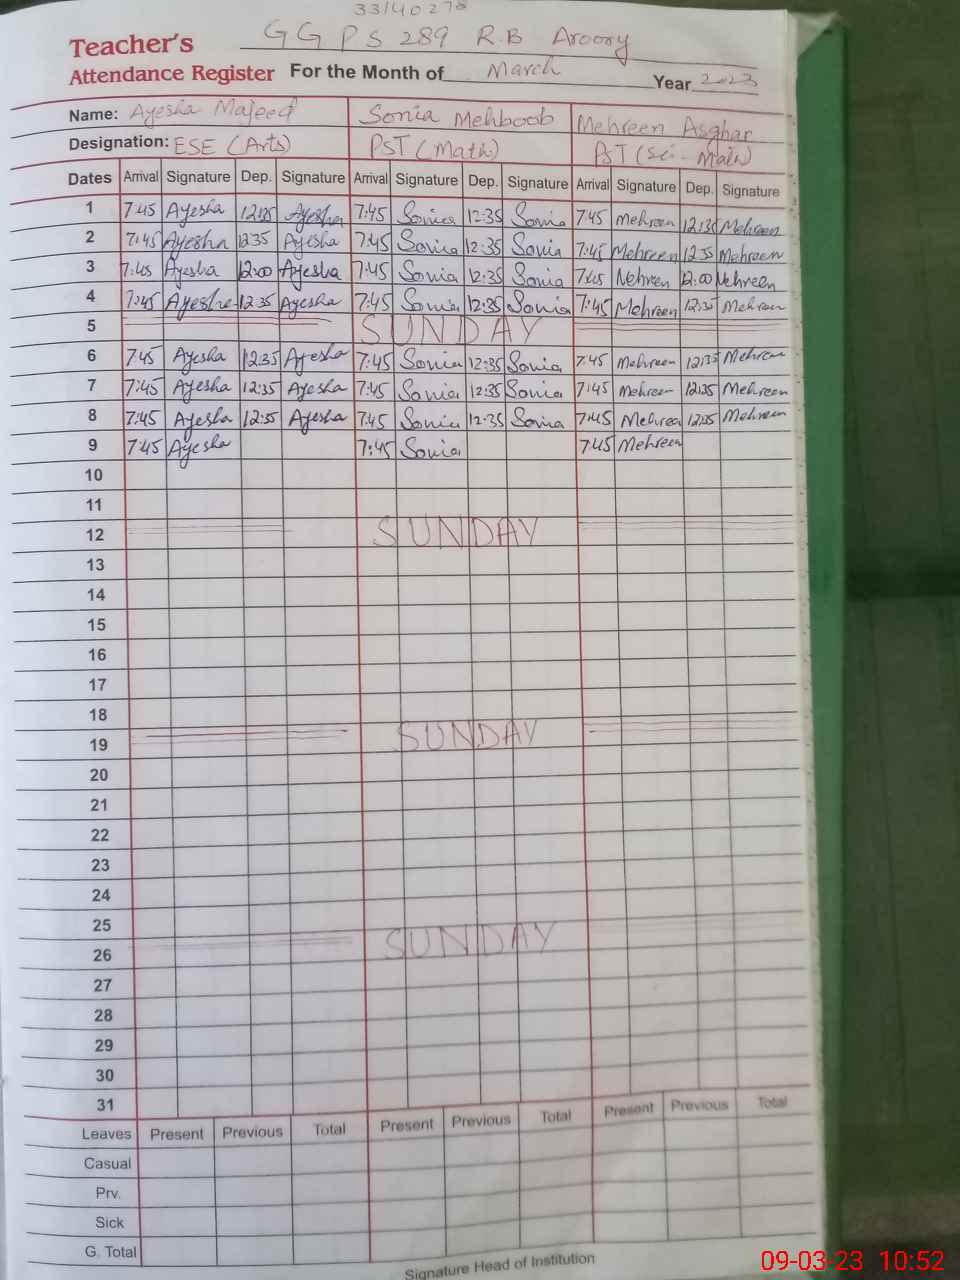 33140278
GGPS 289 R.B Aroory
Teacher's
Attendance Register For the Month of March Year 2023
Name: Ayesha Majeed Sonia Mehboob Mehreen Asghar
Designation: ESE (Arts) PST (Math) PST (Sci-Math)
Dates Arrival Signature Dep. Signature Arrival Signature Dep. Signature Arrival Signature Dep. Signature
1 7:45 Ayesha 12:35 Ayesha 7:45 Sonia 12:35 Sonia 7:45 Mehreen 12:35 Mehreen
2 7:45 Ayesha 12:35 Ayesha 7:45 Sonia 12:35 Sonia 7:45 Mehreen 12:35 Mehreen
3 7:45 Ayesha 12:00 Ayesha 7:45 Sonia 12:35 Sonia 7:45 Mehreen 12:00 Mehreen
4 7:45 Ayesha 12:35 Ayesha 7:45 Sonia 12:35 Sonia 7:45 Mehreen 12:35 Mehreen
5 SUNDAY
6 7:45 Ayesha 12:35 Ayesha 7:45 Sonia 12:35 Sonia 7:45 Mehreen 12:35 Mehreen
7 7:45 Ayesha 12:35 Ayesha 7:45 Sonia 12:35 Sonia 7:45 Mehreen 12:35 Mehreen
8 7:45 Ayesha 12:35 Ayesha 7:45 Sonia 12:35 Sonia 7:45 Mehreen 12:35 Mehreen
9 7:45 Ayesha 7:45 Sonia 7:45 Mehreen
10
11
12 SUNDAY
13
14
15
16
17
18
19 SUNDAY
20
21
22
23
24
25
26 SUNDAY
27
28
29
30
31
Leaves Present Previous Total Present Previous Total Present Previous Total
Casual
Prv.
Sick
G. Total
Signature Head of Institution
09-03-23 10:52